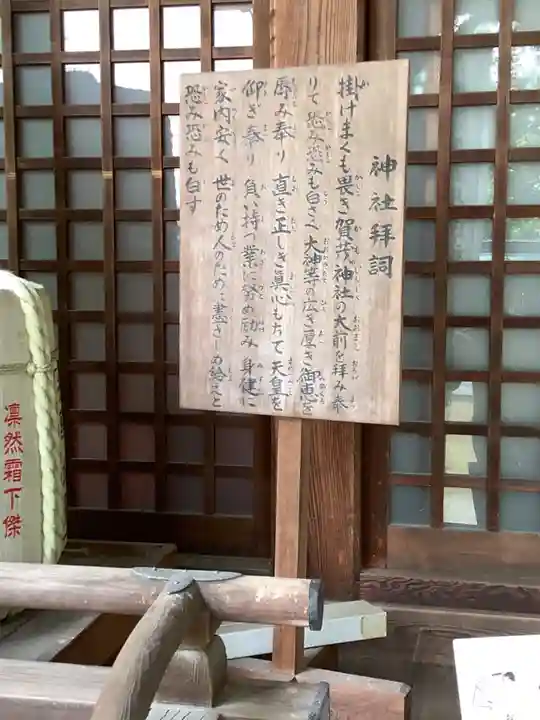 神社拝詞
掛けまくも畏き賀茂神社の大前を拝み奉
りて恐み恐みも白さく大神等の広き厚き御恵を
辱み奉り直き正しき眞心もちて天皇を
仰ぎ奉り負い持つ業に努め励み身健に
家内安く世のため人のために盡さしめ給えと
恐み恐みも白す
凛然霜下傑